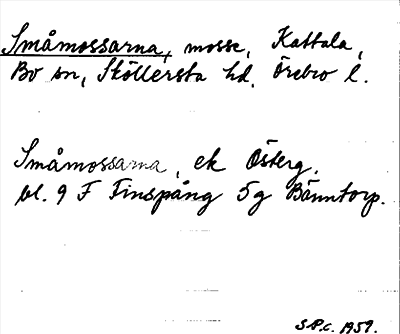 Småmossarna, mosse, Kattala,
Bo sn, Sköllersta hd. Örebro l.
Småmossarna, ek Österg.
bl. 9 F Finspång 5g Bänntorp.
S.P.c. 1959.